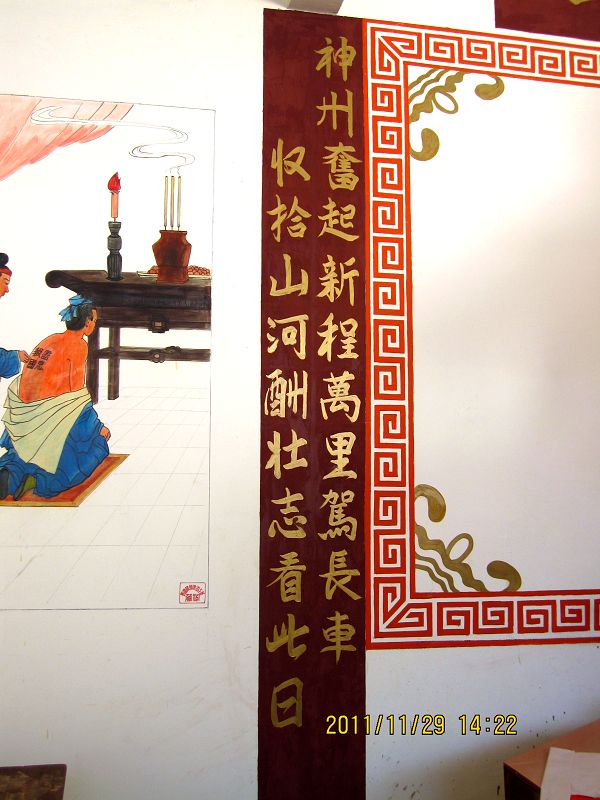 神州奮起新程萬里駕長車
収拾山河酬壮志看此日
盡忠
報國
2011/11/29 14:22